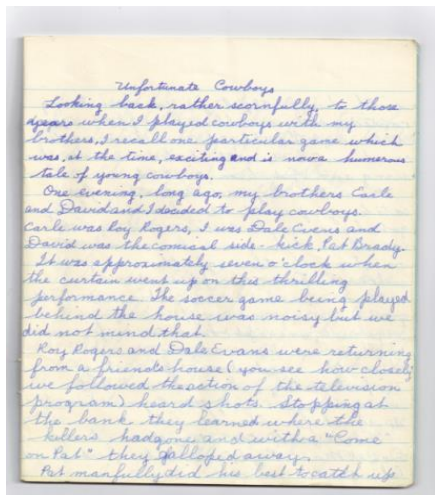 Unfortunate Cowboys
Looking back, rather scornfully, to those
years when I played cowboys with my
brothers, I recall one particular game which
was, at the time, exciting and is now a humerous
tale of young cowboys.
One evening, long ago, my brothers Earle
and David and I decided to play cowboys.
Earle was Roy Rogers, I was Dale Evens and
David was the comical side-kick, Pat Brady.
It was approximately seven o'clock when
the curtain went up on this thrilling
performance. The soccer game being played
behind the house was noisy but we
did not mind that.
Roy Rogers and Dale Evans were returning
from a friends house (you see how closely
we followed the action of the television
program) heard shots. Stopping at
the bank they learned where the
killers had gone and with a "Come
on Pat" they galloped away.
Pat manfully did his best to catch up